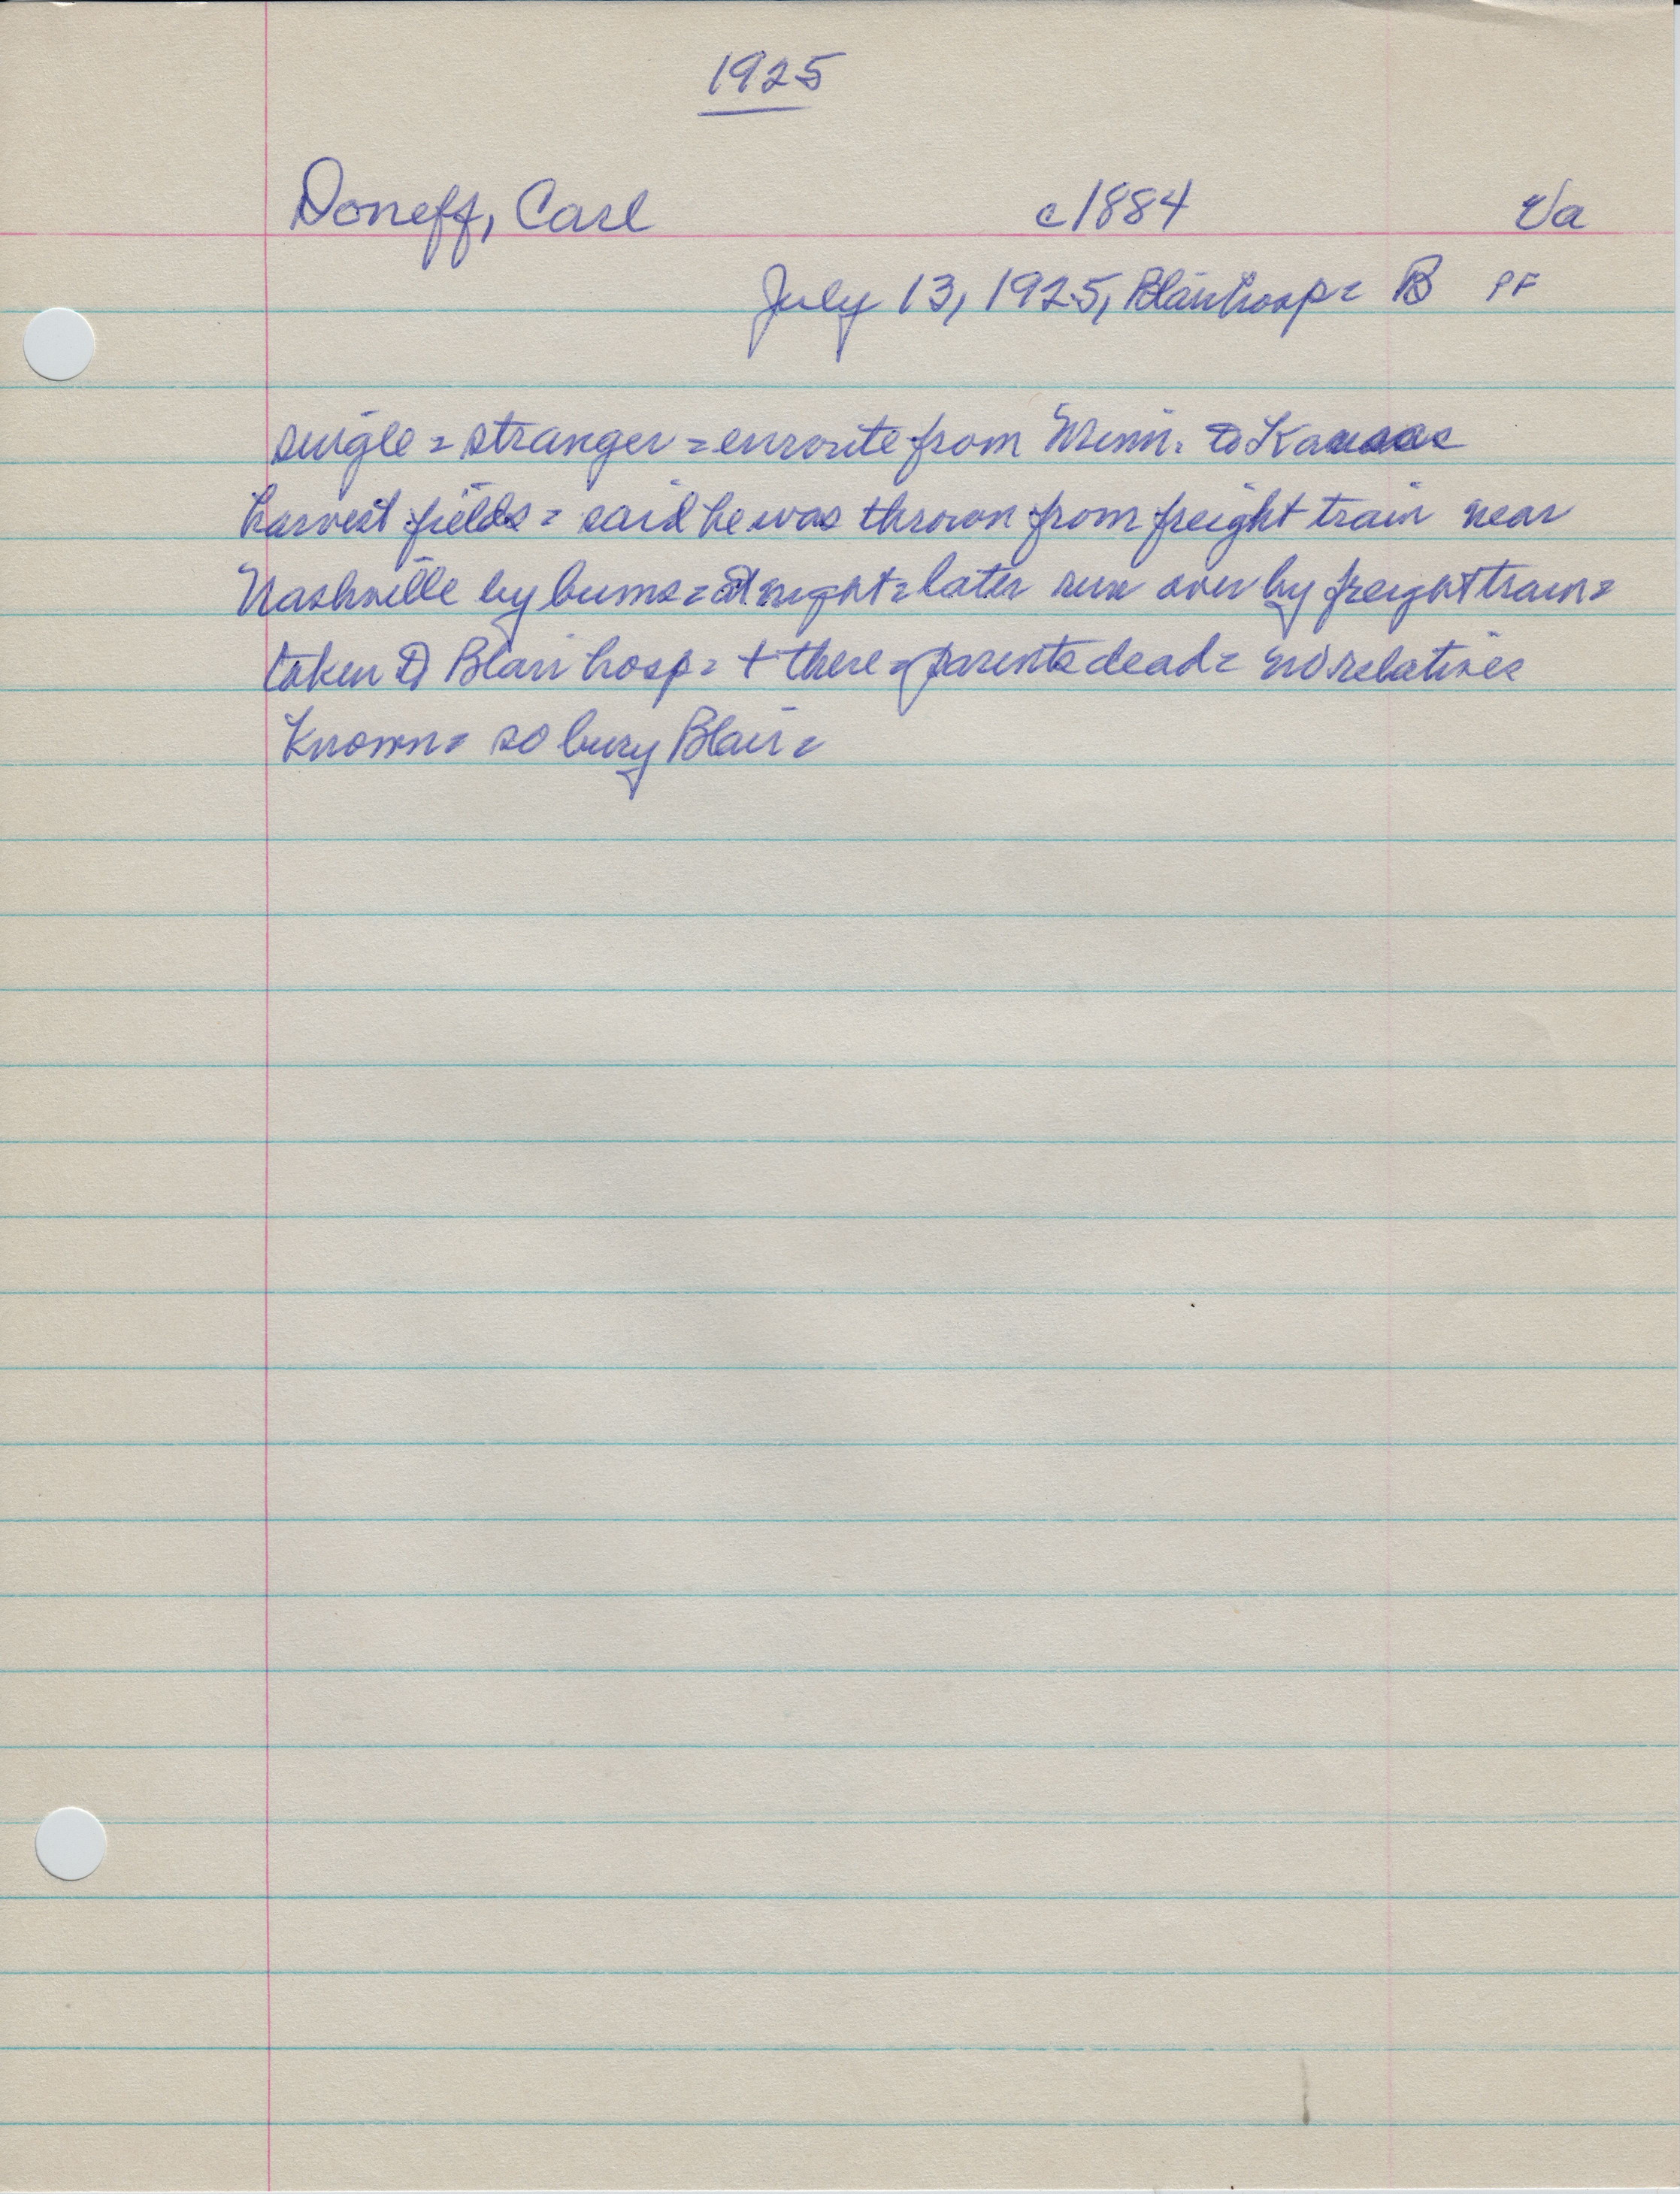 1925
Doneff, Carl c1884 Va
July 13, 1925, Blair hosp = B PF
single = stranger = enroute from Minn. to Kansas
harvest fields = said he was thrown from freight train near
Nashville by bums = at night = later run over by freight train =
taken to Blair hosp = + there = parents dead = no relatives
known = so bury Blair =